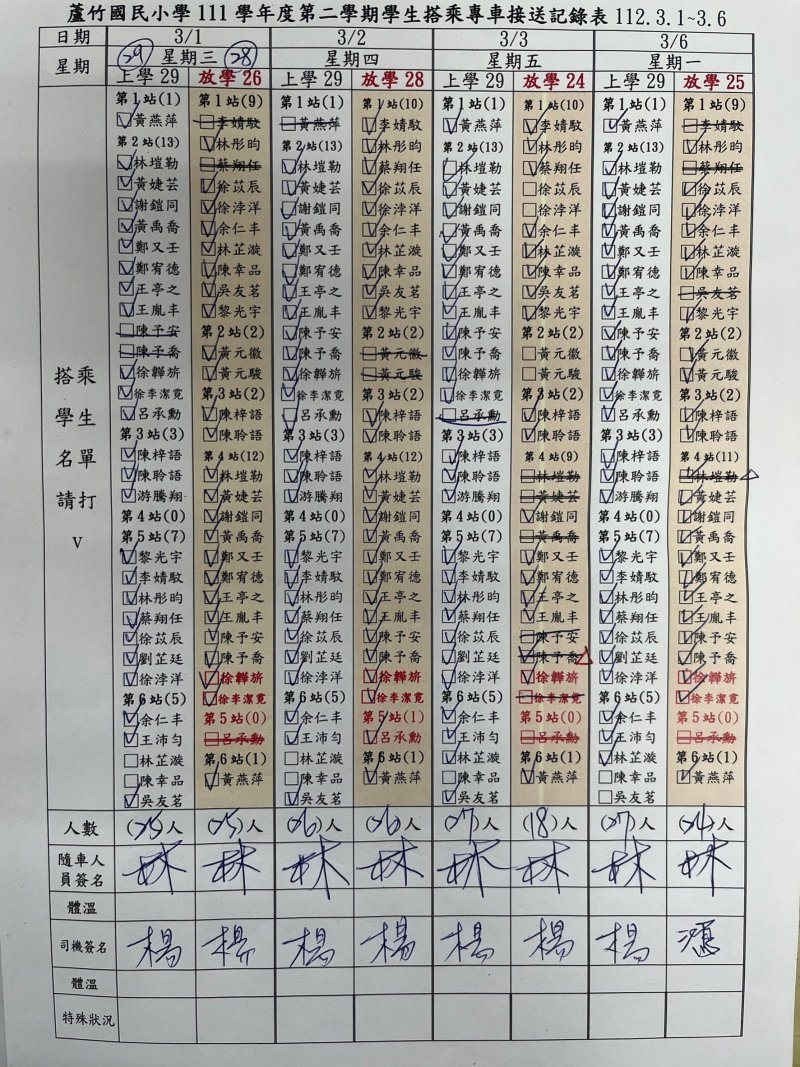 蘆竹國民小學 111 學年度第二學期學生搭乘專車接送記錄表 112.3.1~3.6
日期 3/1 3/2 3/3 3/6
星期 29 星期三 28 星期四 星期五 星期一
上學 29 放學 26 上學 29 放學 28 上學 29 放學 24 上學 29 放學 25
第 1 站(1) 第 1 站(9) 第 1 站(1) 第 1 站(10) 第 1 站(1) 第 1 站(10) 第 1 站(1) 第 1 站(9)
黃燕萍 李婧馭 黃燕萍 李婧馭 黃燕萍 李婧馭 黃燕萍 李婧馭
第 2 站(13) 林彤昀 第 2 站(13) 林彤昀 第 2 站(13) 林彤昀 第 2 站(13) 林彤昀
林塏勒 蔡翔任 林塏勒 蔡翔任 林塏勒 蔡翔任 林塏勒 蔡翔任
黃婕芸 徐苡辰 黃婕芸 徐苡辰 黃婕芸 徐苡辰 黃婕芸 徐苡辰
謝鎧同 徐浡洋 謝鎧同 徐浡洋 謝鎧同 徐浡洋 謝鎧同 徐浡洋
黃禹喬 余仁丰 黃禹喬 余仁丰 黃禹喬 余仁丰 黃禹喬 余仁丰
鄭又壬 林芷漩 鄭又壬 林芷漩 鄭又壬 林芷漩 鄭又壬 林芷漩
鄭宥德 陳幸品 鄭宥德 陳幸品 鄭宥德 陳幸品 鄭宥德 陳幸品
王亭之 吳友茗 王亭之 吳友茗 王亭之 吳友茗 王亭之 吳友茗
王胤丰 黎光宇 王胤丰 黎光宇 王胤丰 黎光宇 王胤丰 黎光宇
陳予安 第 2 站(2) 陳予安 第 2 站(2) 陳予安 第 2 站(2) 陳予安 第 2 站(2)
陳予喬 黃元徽 陳予喬 黃元徽 陳予喬 黃元徽 陳予喬 黃元徽
徐韡旂 黃元駿 徐韡旂 黃元駿 徐韡旂 黃元駿 徐韡旂 黃元駿
徐李潔霓 第 3 站(2) 徐李潔霓 第 3 站(2) 徐李潔霓 第 3 站(2) 徐李潔霓 第 3 站(2)
呂承勳 陳梓語 呂承勳 陳梓語 呂承勳 陳梓語 呂承勳 陳梓語
第 3 站(3) 陳聆語 第 3 站(3) 陳聆語 第 3 站(3) 陳聆語 第 3 站(3) 陳聆語
陳梓語 第 4 站(12) 陳梓語 第 4 站(12) 陳梓語 第 4 站(9) 陳梓語 第 4 站(11)
陳聆語 林塏勒 陳聆語 林塏勒 陳聆語 林塏勒 陳聆語 林塏勒 △
游騰翔 黃婕芸 游騰翔 黃婕芸 游騰翔 黃婕芸 游騰翔 黃婕芸
第 4 站(0) 謝鎧同 第 4 站(0) 謝鎧同 第 4 站(0) 謝鎧同 第 4 站(0) 謝鎧同
第 5 站(7) 黃禹喬 第 5 站(7) 黃禹喬 第 5 站(7) 黃禹喬 第 5 站(7) 黃禹喬
黎光宇 鄭又壬 黎光宇 鄭又壬 黎光宇 鄭又壬 黎光宇 鄭又壬
李婧馭 鄭宥德 李婧馭 鄭宥德 李婧馭 鄭宥德 李婧馭 鄭宥德
林彤昀 王亭之 林彤昀 王亭之 林彤昀 王亭之 林彤昀 王亭之
蔡翔任 王胤丰 蔡翔任 王胤丰 蔡翔任 王胤丰 蔡翔任 王胤丰
徐苡辰 陳予安 徐苡辰 陳予安 徐苡辰 陳予安 徐苡辰 陳予安
劉芷廷 陳予喬 劉芷廷 陳予喬 劉芷廷 陳予喬 △ 劉芷廷 陳予喬
徐浡洋 徐韡旂 徐浡洋 徐韡旂 徐浡洋 徐韡旂 徐浡洋 徐韡旂
第 6 站(5) 徐李潔霓 第 6 站(5) 徐李潔霓 第 6 站(5) 徐李潔霓 第 6 站(5) 徐李潔霓
余仁丰 第 5 站(0) 余仁丰 第 5 站(1) 余仁丰 第 5 站(0) 余仁丰 第 5 站(0)
王沛勻 呂承勳 王沛勻 呂承勳 王沛勻 呂承勳 王沛勻 呂承勳
林芷漩 第 6 站(1) 林芷漩 第 6 站(1) 林芷漩 第 6 站(1) 林芷漩 第 6 站(1)
陳幸品 黃燕萍 陳幸品 黃燕萍 陳幸品 黃燕萍 陳幸品 黃燕萍
吳友茗 吳友茗 吳友茗 吳友茗
搭乘
學生
名單
請打
V
人數 (25)人 (25)人 (26)人 (26)人 (27)人 (18)人 (27)人 (24)人
隨車人
員簽名 林 林 林 林 林 林 林 林
體溫
司機簽名 楊 楊 楊 楊 楊 楊 楊
體溫
特殊狀況